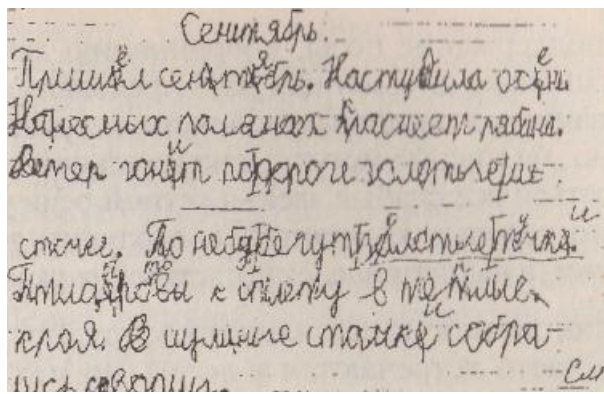 Сентябрь.
Пришёл сентябрь. Наступила осень.
На лесных полянах краснеет рябина.
Ветер гонит по дороге золотые лис-
точки. По небу бегут золотые тучки.
Птицы готовы к отлёту в тёплые
края. В шумные стайки собра-
лись скворцы.